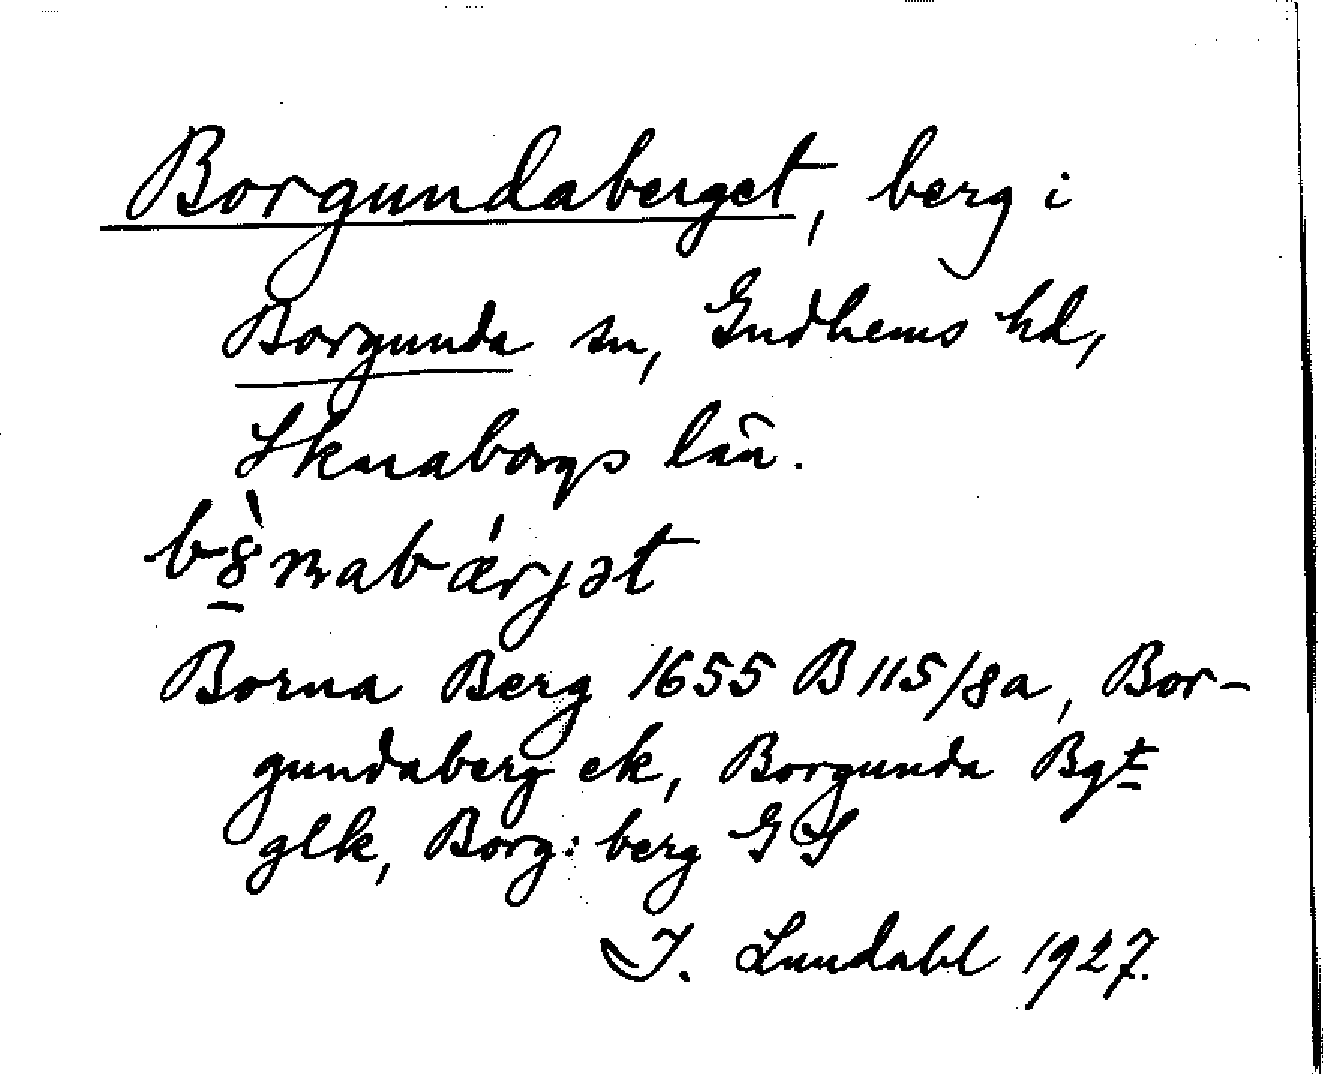 Borgundaberget, berg i
Borgunda sn, Gudhems hd,
Skaraborgs län.
Borna Berg 1655 B 115/8a, Bor-
gundaberg ek, Borgunda Bgt
glk, Borg: berg GS
I. Lundahl 1927.